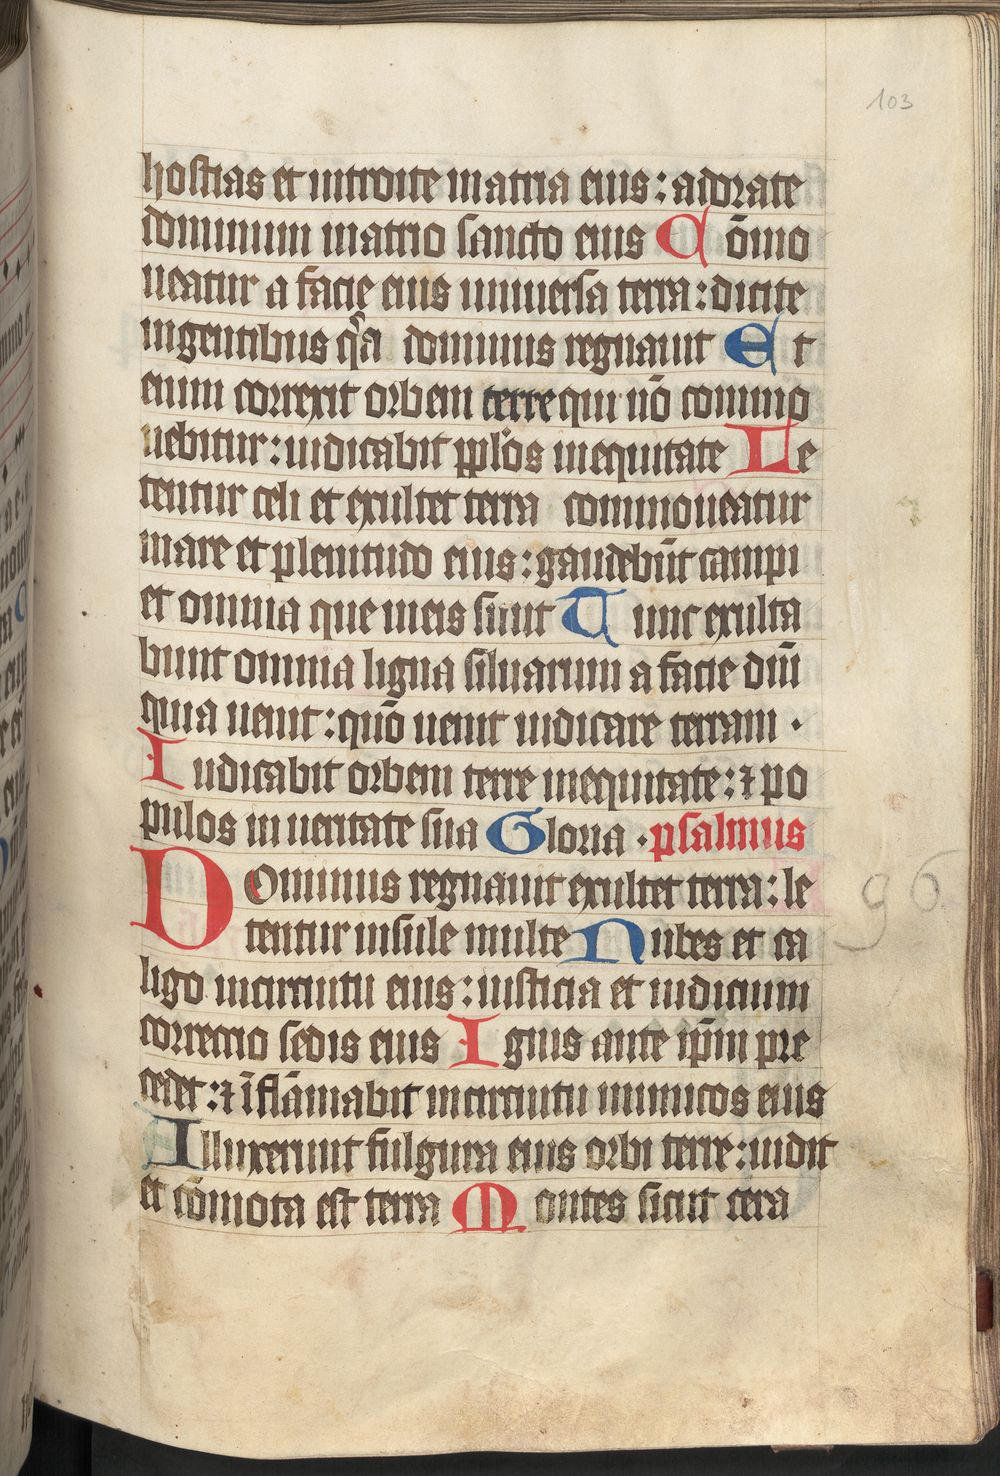 103
hostias et introite in atria eius : adorate
dominum in atrio sancto eius Cōmo
ueatur a facie eius uniuersa terra : dicite
in gentibus qͣa dominus regnauit Et
enim correxit orbem terre qui nō commo
uebitur : iudicabit pplōs in equitate Le
tentur celi et exultet terra commoueatur
mare et plenitudo eius : gaudebūt campi
et omnia que in eis sunt Tunc exulta
bunt omnia ligna siluarum a facie dn̄i
quia uenit : qn̄o uenit iudicare terram ·
Iudicabit orbem terre in equitate : ⁊ po
pulos in ueritate sua Gloria · psalmus
DOminus regnauit exultet terra : le
tentur insule multe Nubes et ca
ligo in circuitu eius : iusticia et iudicium
correctio sedis eius Ignis ante ip̄m pre
cedet : ⁊ īflāmabit in circuitu inimicos eius
Illuxerunt fulgura eius orbi terre : uidit
et cōmota est terra Montes sicut cera
96